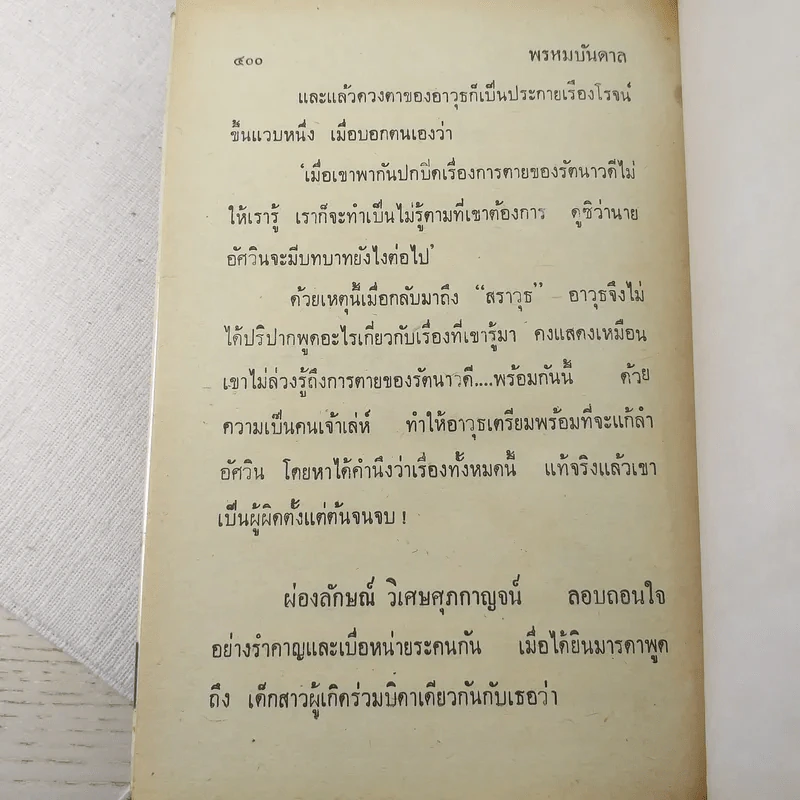 ๔๐๐ พรหมบันดาล
และแล้วดวงตาของอาวุธก็เป็นประกายเรืองโรจน์
ขึ้นแวบหนึ่ง เมื่อบอกตนเองว่า
'เมื่อเขาพากันปกปิดเรื่องการตายของรัตนาวดีไม่
ให้เรารู้ เราก็จะทำเป็นไม่รู้ตามที่เขาต้องการ ดูซิว่านาย
อัศวินจะมีบทบาทยังไงต่อไป'
ด้วยเหตุนี้เมื่อกลับมาถึง “สราวุธ” อาวุธจึงไม่
ได้ปริปากพูดอะไรเกี่ยวกับเรื่องที่เขารู้มา คงแสดงเหมือน
เขาไม่ล่วงรู้ถึงการตายของรัตนาวดี....พร้อมกันนี้ ด้วย
ความเป็นคนเจ้าเล่ห์ ทำให้อาวุธเตรียมพร้อมที่จะแก้ลำ
อัศวิน โดยหาได้คำนึงว่าเรื่องทั้งหมดนี้ แท้จริงแล้วเขา
เป็นผู้ผิดตั้งแต่ต้นจนจบ !
ผ่องลักษณ์ วิเศษศุภกาญจน์ ลอบถอนใจ
อย่างรำคาญและเบื่อหน่ายระคนกัน เมื่อได้ยินมารดาพูด
ถึง เด็กสาวผู้เกิดร่วมบิดาเดียวกันกับเธอว่า